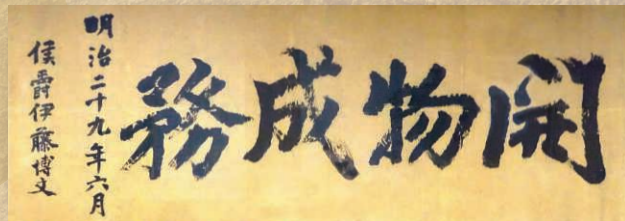 開物成務
明治二十九年六月
侯爵伊藤博文